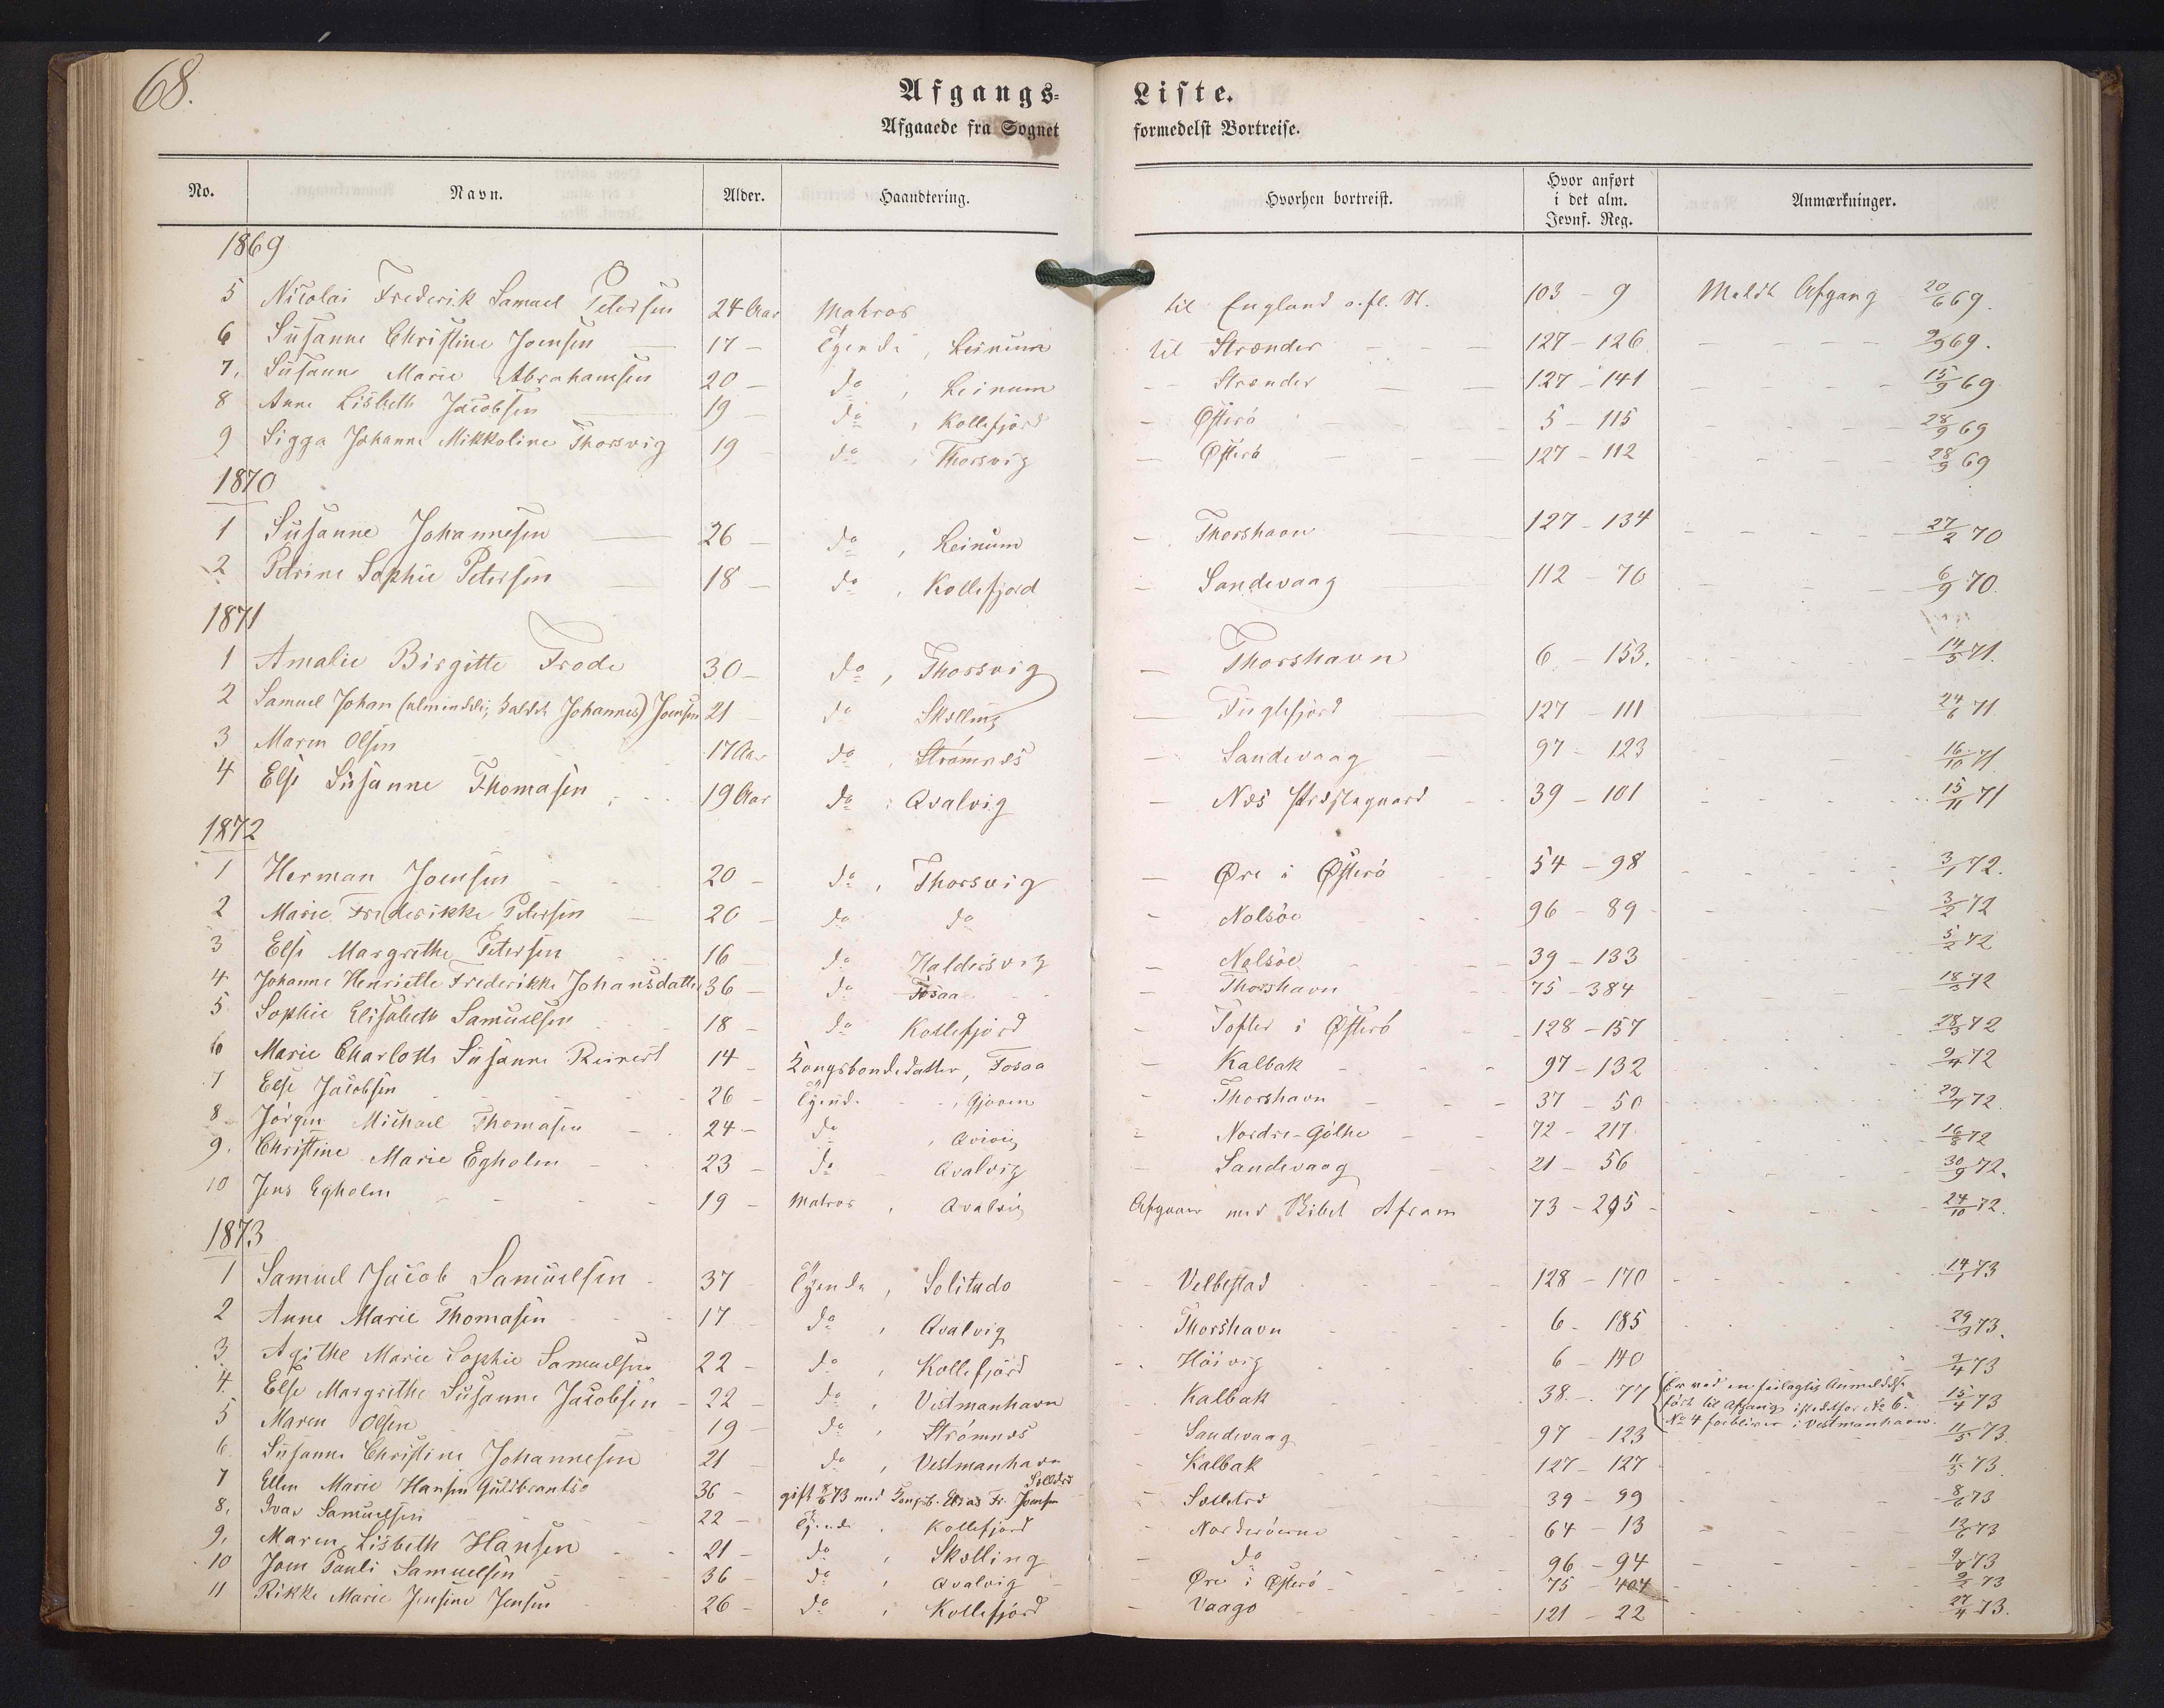 68.
Afgangs-Liste.
Afgaaede fra Sognet formedelst Bortreise.
No. Navn. Alder. Haandtering. Hvorhen bortreist. Hvor anført i det alm. Jevnf. Reg. Anmærkninger.
1869
5 Nicolai Frederik Samuel Petersen 24 Aar Matros til England o. fl. St. 103 - 9 Meldt Afgang 20/6 69.
6 Susanne Christine Joensen 17 - Tjende, Leinum til Strænder 127 - 126 2/9 69.
7, Susanne Marie Abrahamsen 20 - do, Leinum - Strænder 127 - 141 15/9 69
8 Anne Lisbeth Jacobsen 19 - do, Kollefjord - Østerö 5 - 115 28/9 69
9 Sigga Johanne Mikkoline Thorsvig 19 - do, Thorsvig - Østerö 127 - 112 28/9 69
1870
1 Susanne Johannesen 26 - do, Leinum - Thorshavn 127 - 134 27/2 70
2 Petrine Sophie Petersen 18 - do, Kollefjord - Sandevaag 112 - 76 6/9 70.
1871
1 Amalie Birgitte Trode 30 - do, Thorsvig - Thorshavn 6 - 153. 14/5 71.
2 Samuel Johan (almindeli; kaldet Johannes) Joensen 21 - do Skælling - Fuglefjord 127 - 111 24/6 71
3 Maren Olsen 17 Aar do, Strømnæs - Sandevaag 97 - 123 16/10 71
4 Else Susanne Thomasen 19 Aar do, Qvalvig - Næs Præstegaard 39 - 101 15/11 71
1872
1 Herman Joensen 20 - do, Thorsvig - Øre i Østerö 54 - 98 3/1 72.
2 Marie Frederikke Petersen 20 - do do - Nolsöe 96 - 89 3/2 72
3 Else Margrethe Petersen 16 do Haldersvig - Nolsöe 39 - 133 5/2 72
4 Johanne Henriette Frederikke Johansdatter 36 - do Fosaa - Thorshavn 75 - 384 18/3 72
5 Sophie Elisabeth Samuelsen 18 - do Kollefjord - Tofter i Østerö 128 - 157 28/3 72
6 Marie Charlotte Susanne Reinert 14 - Kongsbondedatter, Fosaa - Kalbak 97 - 132 9/4 72
7 Else Jacobsen 26 - Tjende, Gjovem - Thorshavn 37 - 50 29/7 72.
8 Jörgen Michael Thomasen 24 - do, Qvivig - Nordre-Göthe 72 - 217 16/8 72
9. Christine Marie Egholm 23 - do - Qvalvig - Sandevaag 21 - 56 30/9 72.
10 Jens Egholm 19 - Matros, Qvalvig Afgaaer med Skibet Afram 73 - 295 24/10 72.
1873
1 Samuel Jacob Samuelsen 37 Tjende, Solitude - Velbestad 128 - 170 14/1 73
2 Anne Marie Thomasen 17 do, Qvalvig - Thorshavn 6 - 185 29/3 73.
3. Agithe Marie Sophie Samuelsen 22 - do, Kollefjord - Höivig 6 - 140 2/4 73
4. Else Margrethe Susanne Jacobsen - 22 - do, Vestmanhavn - Kalbak 38. - 77 (Er ved en feilagtig Anmeldelse
fört til Afgang istedetfor No 6.
No 4 forbliver i Vestmanhavn. 15/4 73
5 Maren Olsen 19 - do, Strömnæs - Sandevaag 97 - 123 11/5 73
6. Susanne Christine Johannesen 21 do, Vestmanhavn - Kalbak 127 - 127 11/5 73.
7 Ellen Marie Hansen Guldbrantsö 36 - gift 8/6 73 med Kongsb. Elias Fr. Joensen Selletræ - Selletræ 39 - 99 8/6 73
8, Ivar Samuelsen 22 - Tjende, Kollefjord - Norderöerne 64 - 13 13/6 73
9, Maren Lisbeth Hansen 21 - do, Skælling - do 96 - 94 9/7 73
10 Joen Pauli Samuelsen 36 - do, Qvalvig - Øre i Østerö 75 - 404 2/2 73
11 Rikke Marie Jensine Jensen 26 - do, Kollefjord - Vaagö 121 - 22 27/4 73.